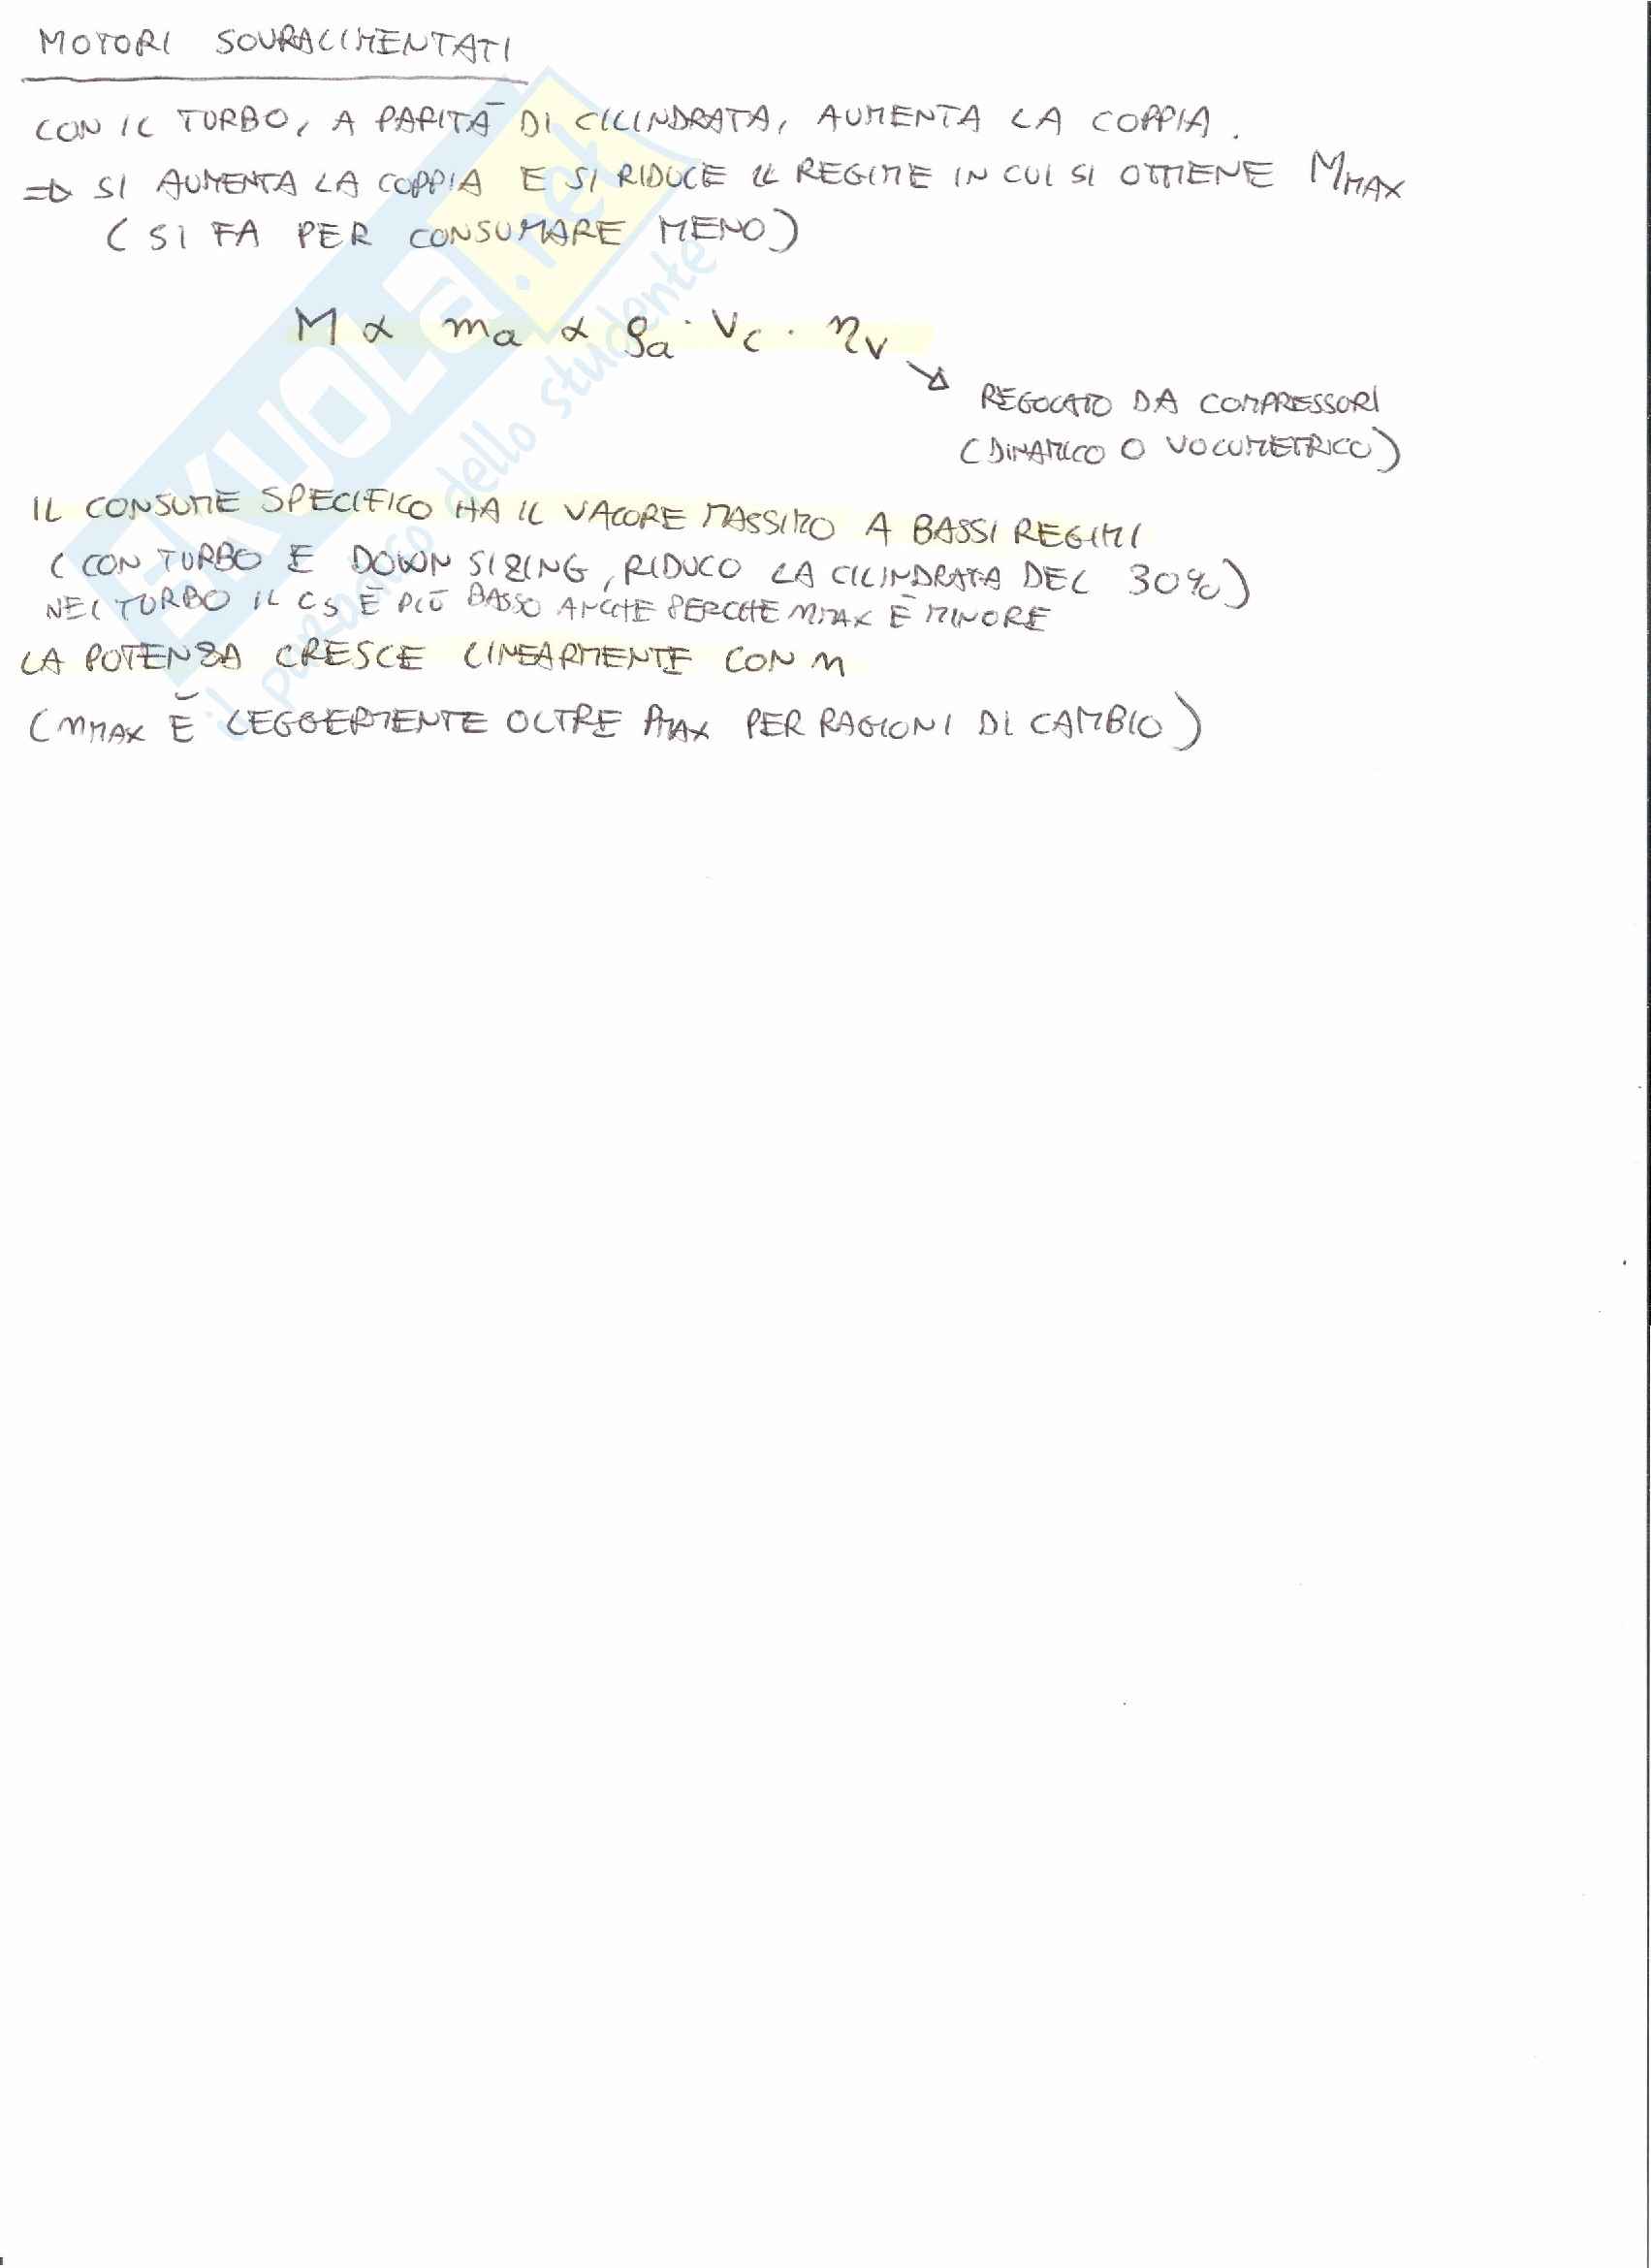 MOTORI SOVRALIMENTATI
CON IL TURBO, A PARITÀ DI CILINDRATA, AUMENTA LA COPPIA.
=> SI AUMENTA LA COPPIA E SI RIDUCE IL REGIME IN CUI SI OTTIENE MMAX
(SI FA PER CONSUMARE MENO)
M ∝ ma ∝ ρa · Vc · ηv
REGOLATO DA COMPRESSORI
(DINAMICO O VOLUMETRICO)
IL CONSUME SPECIFICO HA IL VALORE MASSIMO A BASSI REGIMI
(CON TURBO E DOWN SIZING, RIDUCO LA CILINDRATA DEL 30%)
NEL TURBO IL CS È PIÙ BASSO ANCHE PERCHÉ nMAX È MINORE
LA POTENZA CRESCE LINEARMENTE CON n
(nMAX È LEGGERMENTE OLTRE PMAX PER RAGIONI DI CAMBIO)
SKUOLa.net
il paradiso dello studente